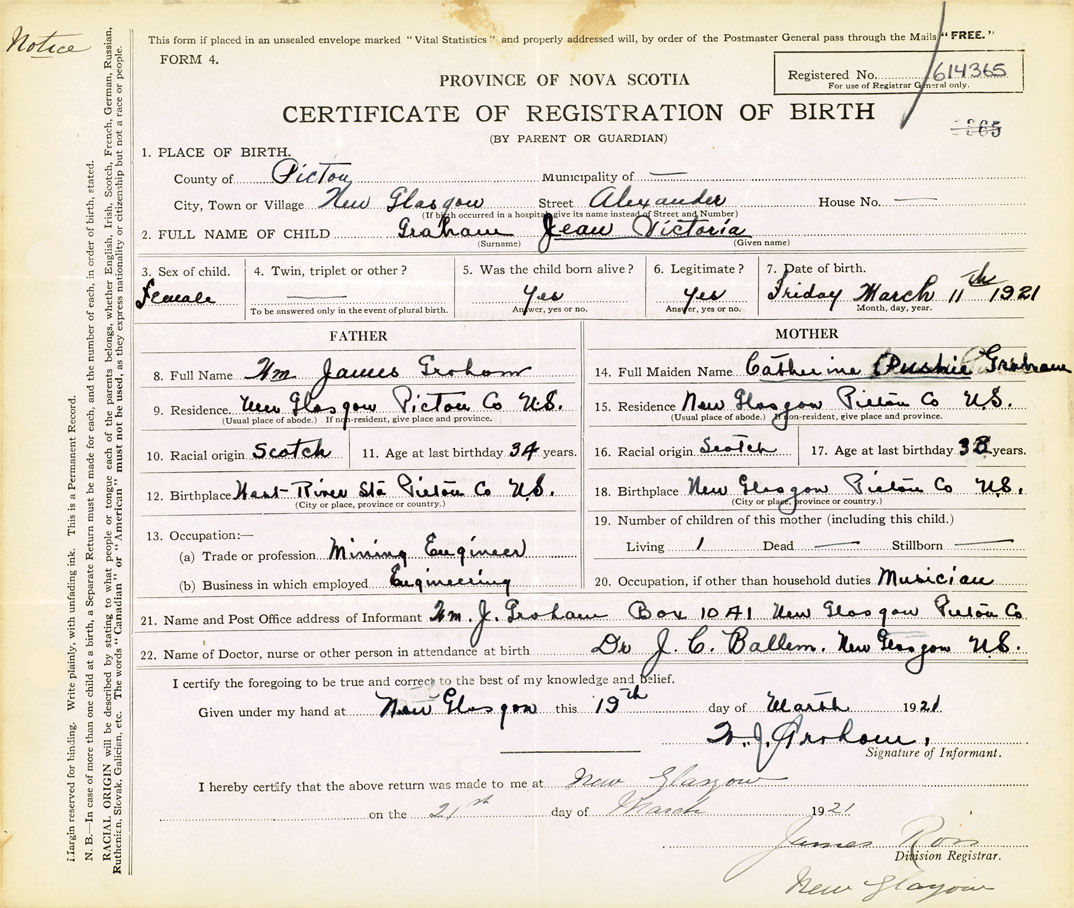 Notice
This form if placed in an unsealed envelope marked "Vital Statistics" and properly addressed will, by order of the Postmaster General pass through the Mails "FREE."
FORM 4.
Registered No. 614365
For use of Registrar General only.
PROVINCE OF NOVA SCOTIA
CERTIFICATE OF REGISTRATION OF BIRTH
(BY PARENT OR GUARDIAN)
1. PLACE OF BIRTH.
County of Pictou Municipality of —
City, Town or Village New Glasgow Street Alexander House No. —
(If birth occurred in a hospital give its name instead of Street and Number)
2. FULL NAME OF CHILD Graham Jean Victoria
(Surname) (Given name)
3. Sex of child. 4. Twin, triplet or other? 5. Was the child born alive? 6. Legitimate? 7. Date of birth.
Female — Yes Yes Friday March 11th 1921
To be answered only in the event of plural birth. Answer, yes or no. Answer, yes or no. Month, day, year.
FATHER
8. Full Name Wm James Graham
9. Residence. New Glasgow Pictou Co N.S.
(Usual place of abode.) If non-resident, give place and province.
10. Racial origin Scotch 11. Age at last birthday 34 years.
12. Birthplace West River Sta Pictou Co N.S.
(City or place, province or country.)
13. Occupation:—
(a) Trade or profession Mining Engineer
(b) Business in which employed Engineering
MOTHER
14. Full Maiden Name Catherine Graham
15. Residence New Glasgow Pictou Co N.S.
(Usual place of abode.) If non-resident, give place and province.
16. Racial origin Scotch 17. Age at last birthday years.
18. Birthplace New Glasgow Pictou Co N.S.
(City or place, province or country.)
19. Number of children of this mother (including this child.)
Living 1 Dead — Stillborn —
20. Occupation, if other than household duties Musician
21. Name and Post Office address of Informant Wm. J. Graham Box 1041 New Glasgow Pictou Co
22. Name of Doctor, nurse or other person in attendance at birth Dr J. C. Ballem. New Glasgow N.S.
I certify the foregoing to be true and correct to the best of my knowledge and belief.
Given under my hand at New Glasgow this 19th day of March 1921
W. J. Graham.
Signature of Informant.
I hereby certify that the above return was made to me at New Glasgow
on the 21st day of March 1921
James Ross
Division Registrar.
New Glasgow
Margin reserved for binding. Write plainly, with unfading ink. This is a Permanent Record.
N. B.—In case of more than one child at a birth, a Separate Return must be made for each, and the number of each, in order of birth, stated.
RACIAL ORIGIN will be described by stating to what people or tongue each of the parents belongs, whether English, Irish, Scotch, French, German, Russian,
Ruthenian, Slovak, Galician, etc. The words "Canadian" or "American" must not be used, as they express nationality or citizenship but not a race or people.